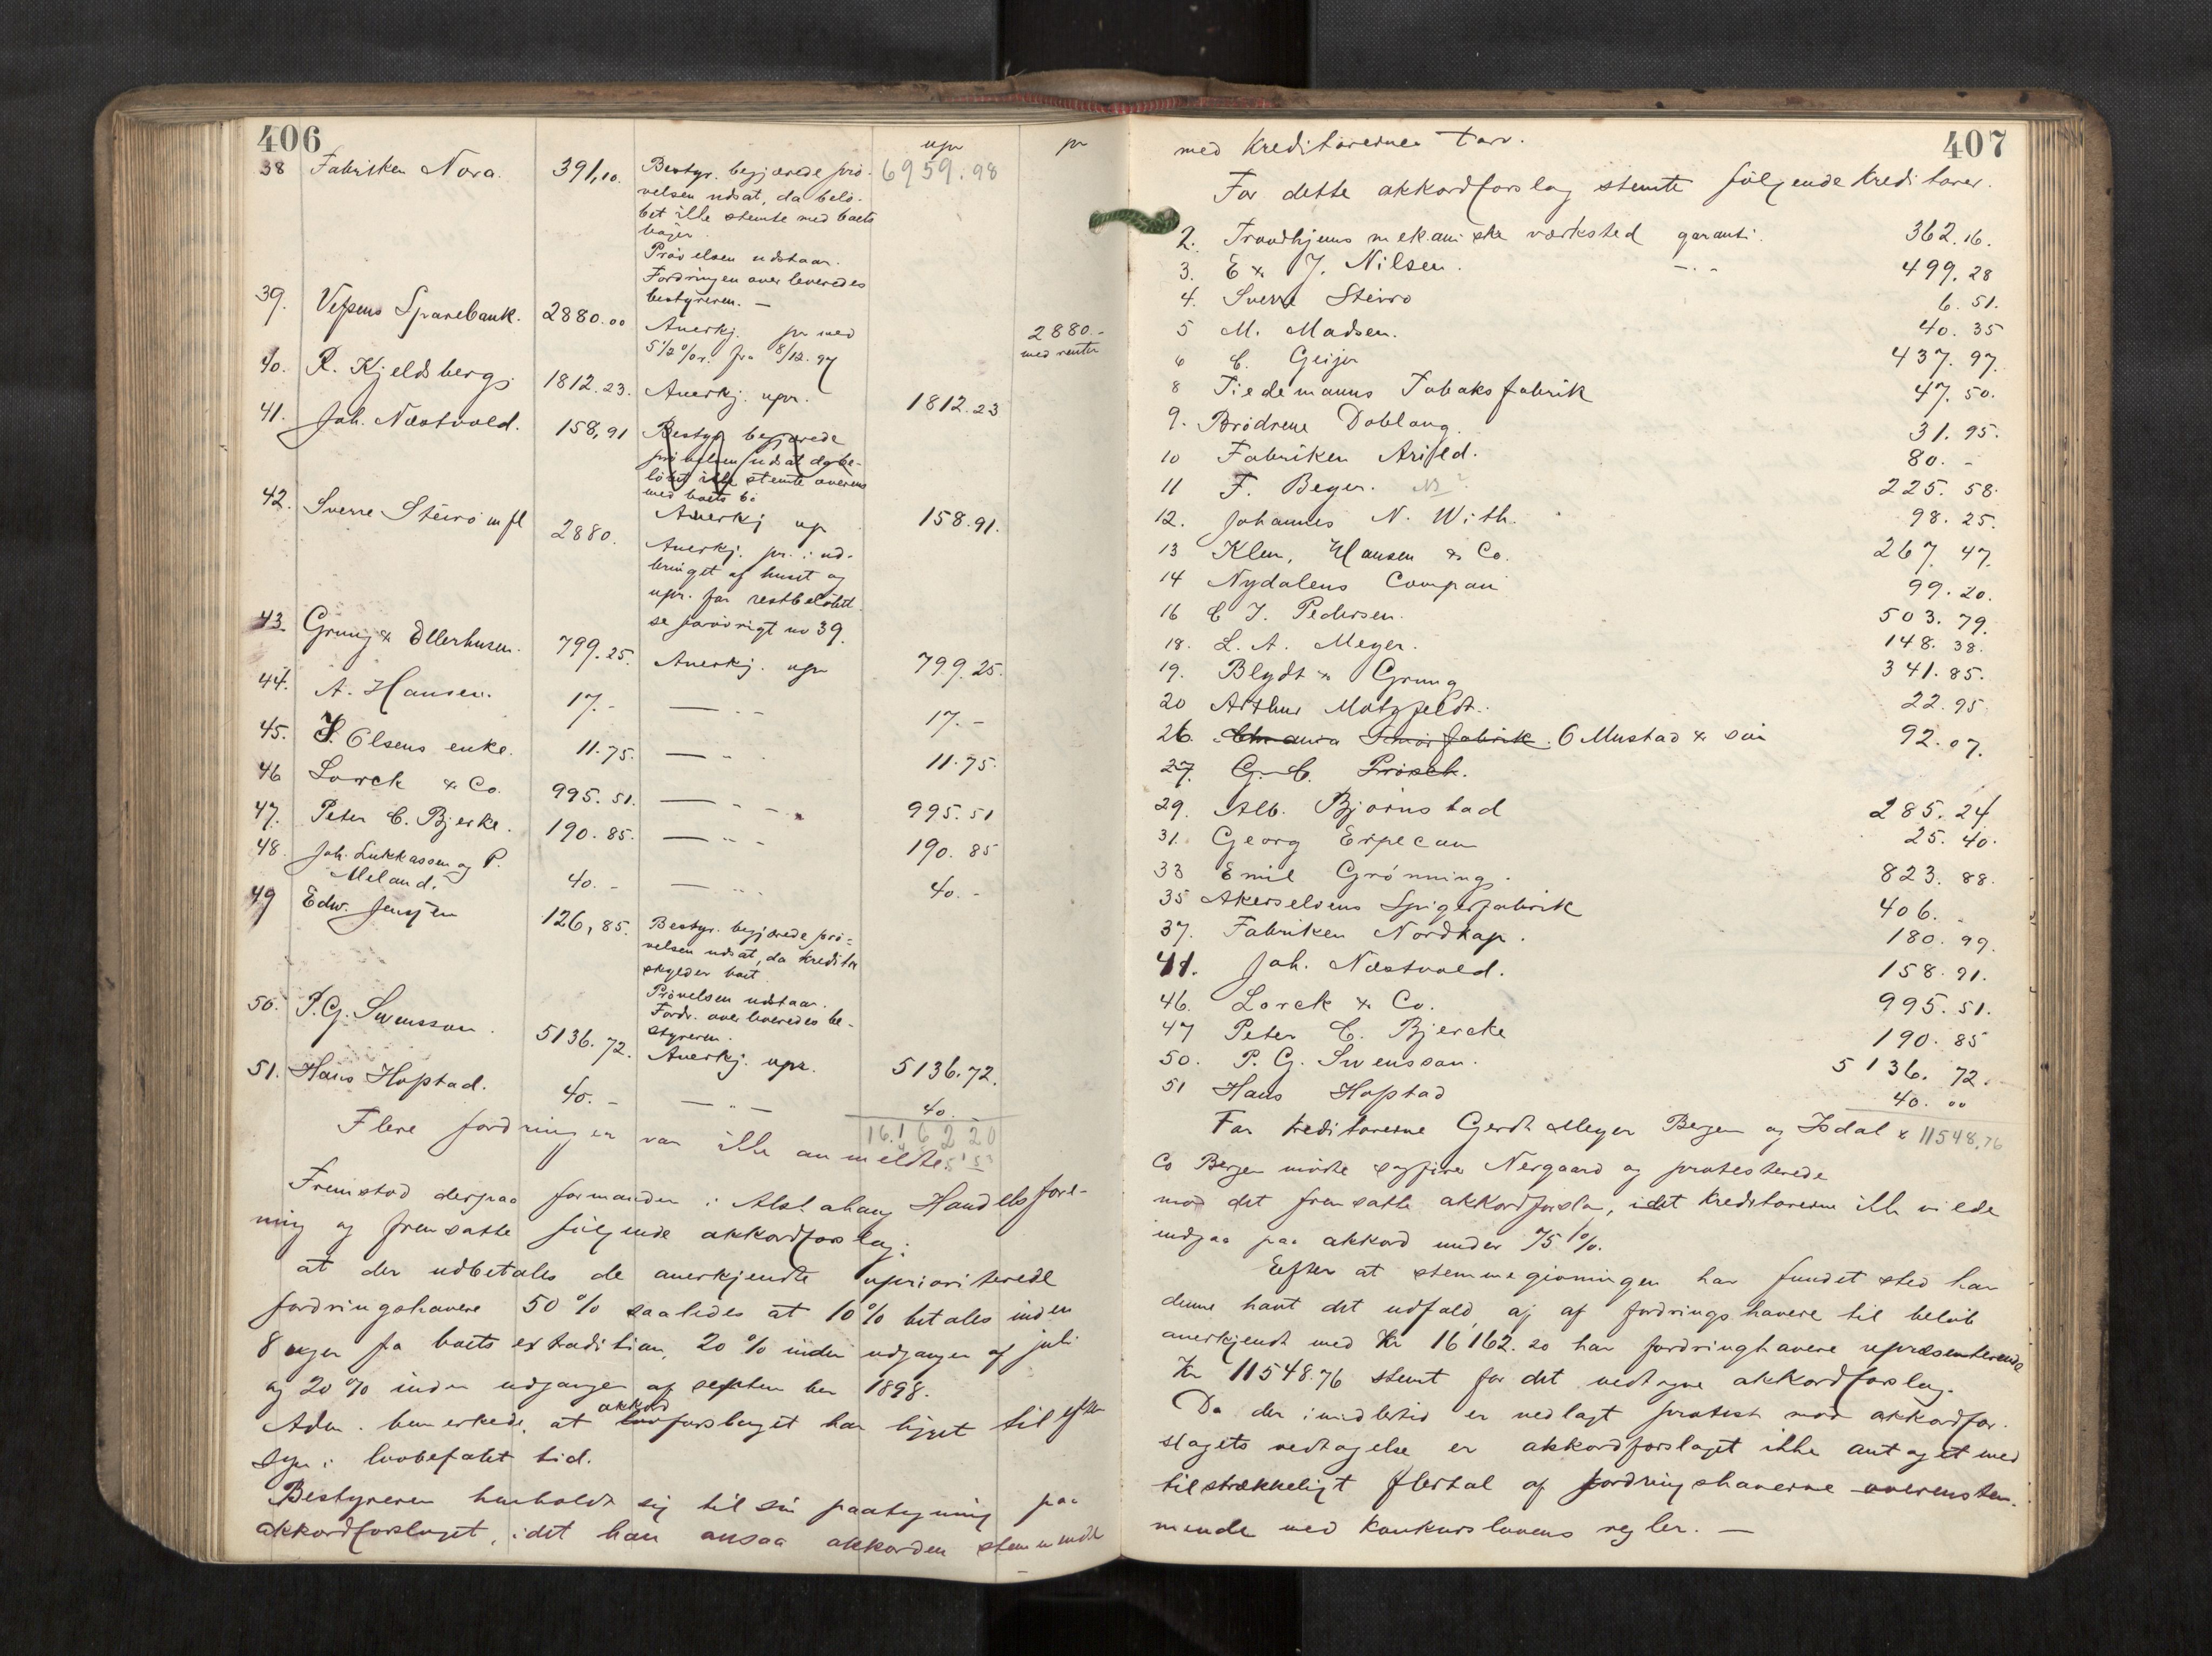 406
upr pr
38 Fabriken Nora. 391,10. Bestyr. begjærede prö- 6959.98
velsen udsat, da belö-
bet ikke stemte med boets
böger.
Prövelsen udstaar.
Fordringen overleveredes
bestyreren. —
39. Vefsens Sparebank. 2880.00 Anerkj. pr med 2880.-
5 1/2 % r. fra 8/12. 97 med renter
40. R. Kjeldsberg 1812.23. Anerkj. upr. 1812.23
41. Joh. Næstvold. 158,91 Bestyr begjærede
prövelsen udsat da be-
löbet ikke stemte overens
med boets bö
Anerkj upr 158.91.
42. Sverre Steiro m fl 2880. Anerkj. pr. i ud-
bringet af huset og
upr. for restbelöbet
se forövrigt no 39.
43. Grung & Ellerhusen. 799.25. Anerkj. upr 799.25.
44. A. Hansen. 17.- — " - 17.-
45. J. Olsens enke. 11.75. — " - 11.75.
46 Lorck & Co. 995.51. — " - 995.51
47. Peter C. Bjerke. 190.85. — " - 190.85
48. Joh. Lukkassen og P.
Meland. 40.- — " - 40.-
49 Edw. Jenssen 126,85. Bestyr. begjærede prö-
velsen udsat, da kreditor
skylder boet
Prövelsen udstaar.
Fordr. overleveredes be-
styreren.
50. P. G. Svensson. 5136.72. Anerkj. upr. 5136.72.
51. Hans Hopstad. 40.- — " — 40.-
16.162 20
Flere fordringer var ikke anmeldte.
Fremstod derpaa formanden i Alstahaug Handelsfore-
ning og fremsatte fölgende akkordforslag:
at der udbetales de anerkjendte upriorterede
fordringshavere 50 % saaledes at 10 % betales inden
8 uger fra boets extradition, 20 % inden udgangen af juli
og 20 % inden udgangen af september 1898.
Adm. bemerkede, at akkord forslaget har ligget til efter
syn i lovbefalet tid.
Bestyreren henholdt sig til sin paategning paa
akkordforslaget, idet han ansaa akkorden stemmende
407
med kreditorernes tarv.
For dette akkordforslag stemte fölgende kreditorer.
2. Trondhjems mekaniske værksted garanti. 362.16.
3. E & J. Nilsen. — " - 499.28
4. Sverre Steiro 6.51.
5 M. Madsen. 40.35
6 C. Geijer 437.97.
8 Tiedemanns Tobaksfabrik 47.50.
9. Brödrene Dobloug. 31.95.
10 Fabriken Arild. 80.-
11 F. Beyer. 225.58.
12. Johannes N. With. 98.25.
13 Klem, Hansen & Co. 267.47.
14 Nydalens Compani 99.20.
16 C J. Pedersen. 503.79.
18. L. A. Meyer. 148.38.
19. Blydt & Grung 341.85.
20 Arthur Motzfeldt. 22.95
26. Chr ania Smörfabrik. O Mustad & sön 92.07.
27. G. C. Prösch.
29. Alb. Bjørnstad 285.24
31. Georg Erpecum 25.40.
33 Emil Grönning. 823.88.
35 Akerselvens Spigerfabrik 406.-
37. Fabriken Nordkap. 180.99.
41. Joh. Næstvold. 158.91.
46. Lorck & Co. 995.51.
47 Peter C. Bjercke 190.85
50. P. G. Svensson. 5136.72.
51 Hans Hopstad 40.00
For kreditorerne Gerdt Meyer Bergen og Isdal & 11548.76
Co Bergen mödte sagförer Nergaard og protesterede
mod det fremsatte akkordforslag, idet kreditorerne ikke vilde
indgaa paa akkord under 75 %.
Efter at stemmegivningen har fundet sted har
denne havt det udfald, at af fordringshavere til belöb
anerkjendt med Kr 16162.20 har fordringhavere repræsenterende
Kr 11548.76 stemt for det vedtagne akkordforslag.
Da der imidlertid er nedlagt protest mod akkordfor-
slagets vedtagelse er akkordforslaget ikke antaget med
tilstrækkeligt flertal af fordringshaverne overenstem-
mende med konkurslovens regler. —